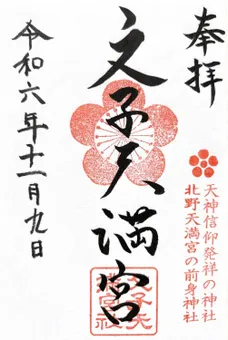 奉拝
天神信仰発祥の神社
北野天満宮の前身神社
文子天満宮
令和六年十一月九日